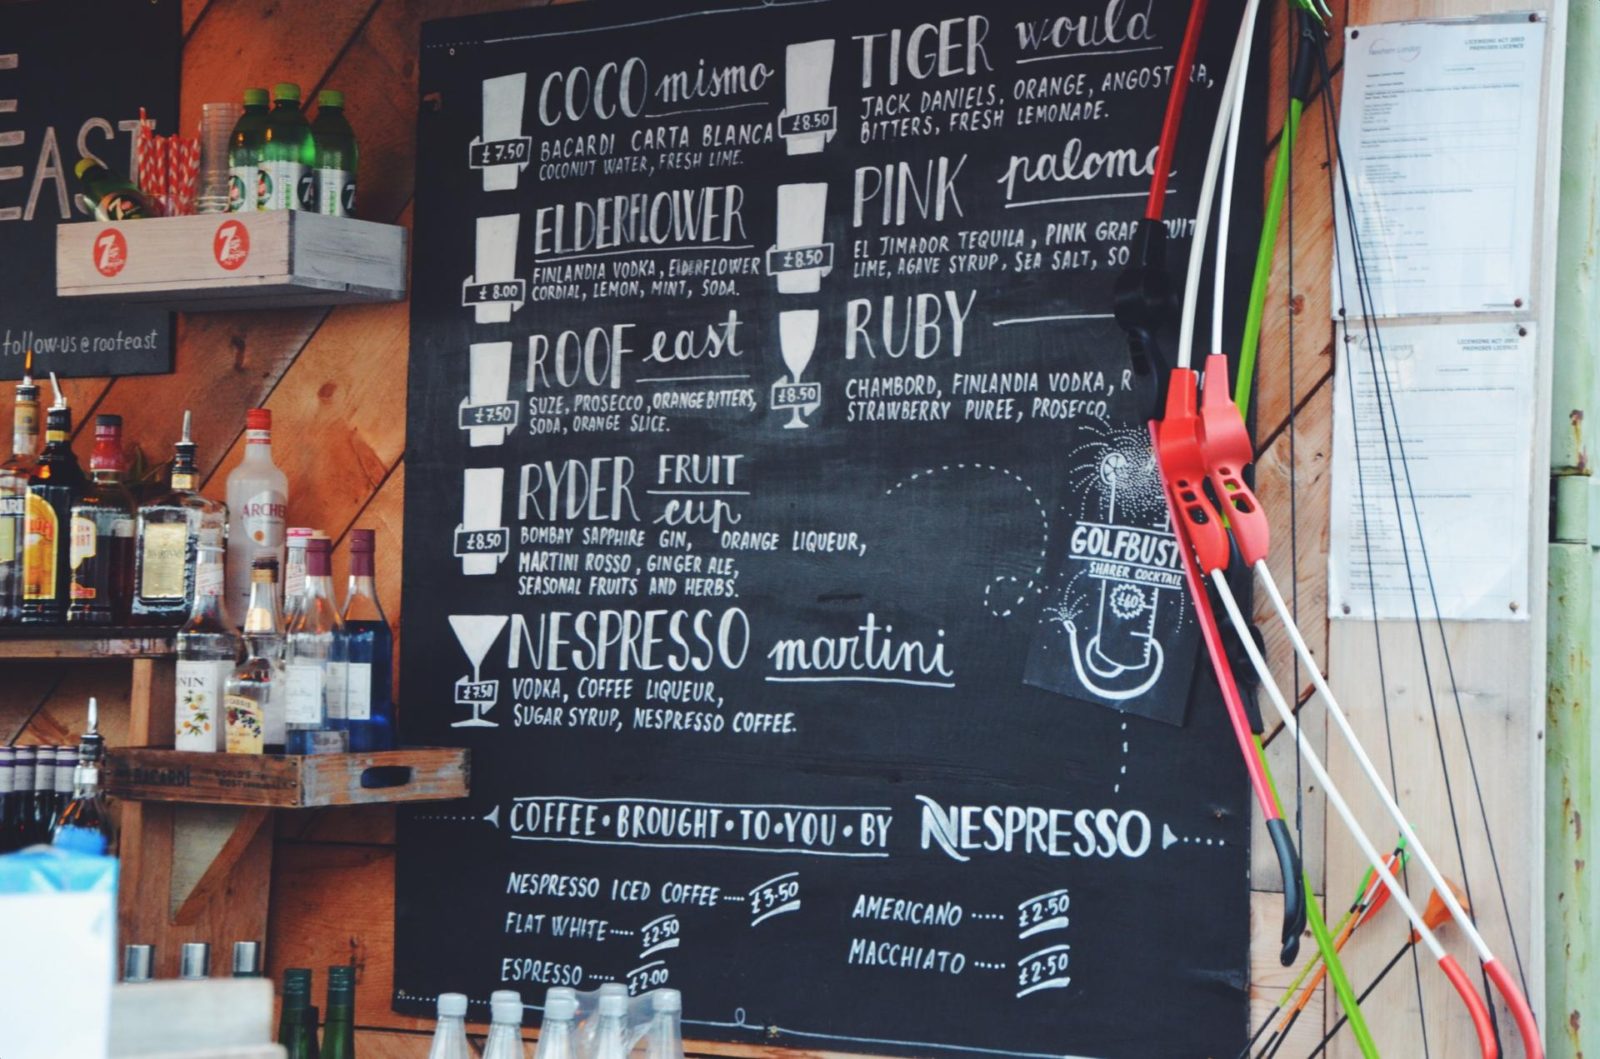 EAST
follow us @ roofeast
7
7
COCO mismo
£7.50
BACARDI CARTA BLANCA
COCONUT WATER, FRESH LIME.
ELDERFLOWER
£8.00
FINLANDIA VODKA, ELDERFLOWER
CORDIAL, LEMON, MINT, SODA.
ROOF east
£7.50
SUZE, PROSECCO, ORANGE BITTERS,
SODA, ORANGE SLICE.
RYDER FRUIT
cup
£8.50
BOMBAY SAPPHIRE GIN, ORANGE LIQUEUR,
MARTINI ROSSO, GINGER ALE,
SEASONAL FRUITS AND HERBS.
NESPRESSO martini
£7.50
VODKA, COFFEE LIQUEUR,
SUGAR SYRUP, NESPRESSO COFFEE.
TIGER would
£8.50
JACK DANIELS, ORANGE, ANGOSTURA,
BITTERS, FRESH LEMONADE.
PINK paloma
£8.50
EL JIMADOR TEQUILA, PINK GRAPEFRUIT
LIME, AGAVE SYRUP, SEA SALT, SO
RUBY
£8.50
CHAMBORD, FINLANDIA VODKA, R
STRAWBERRY PUREE, PROSECCO.
GOLFBUST
SHARER COCKTAIL
£40
COFFEE • BROUGHT • TO • YOU • BY NESPRESSO
NESPRESSO ICED COFFEE ..... £3.50
FLAT WHITE ..... £2.50
ESPRESSO ..... £2.00
AMERICANO ..... £2.50
MACCHIATO ..... £2.50
ARCHE
NIN
BACARDI
LICENSING ACT 2003
PREMISES LICENCE
LICENSING ACT 2003
PREMISES LICENCE